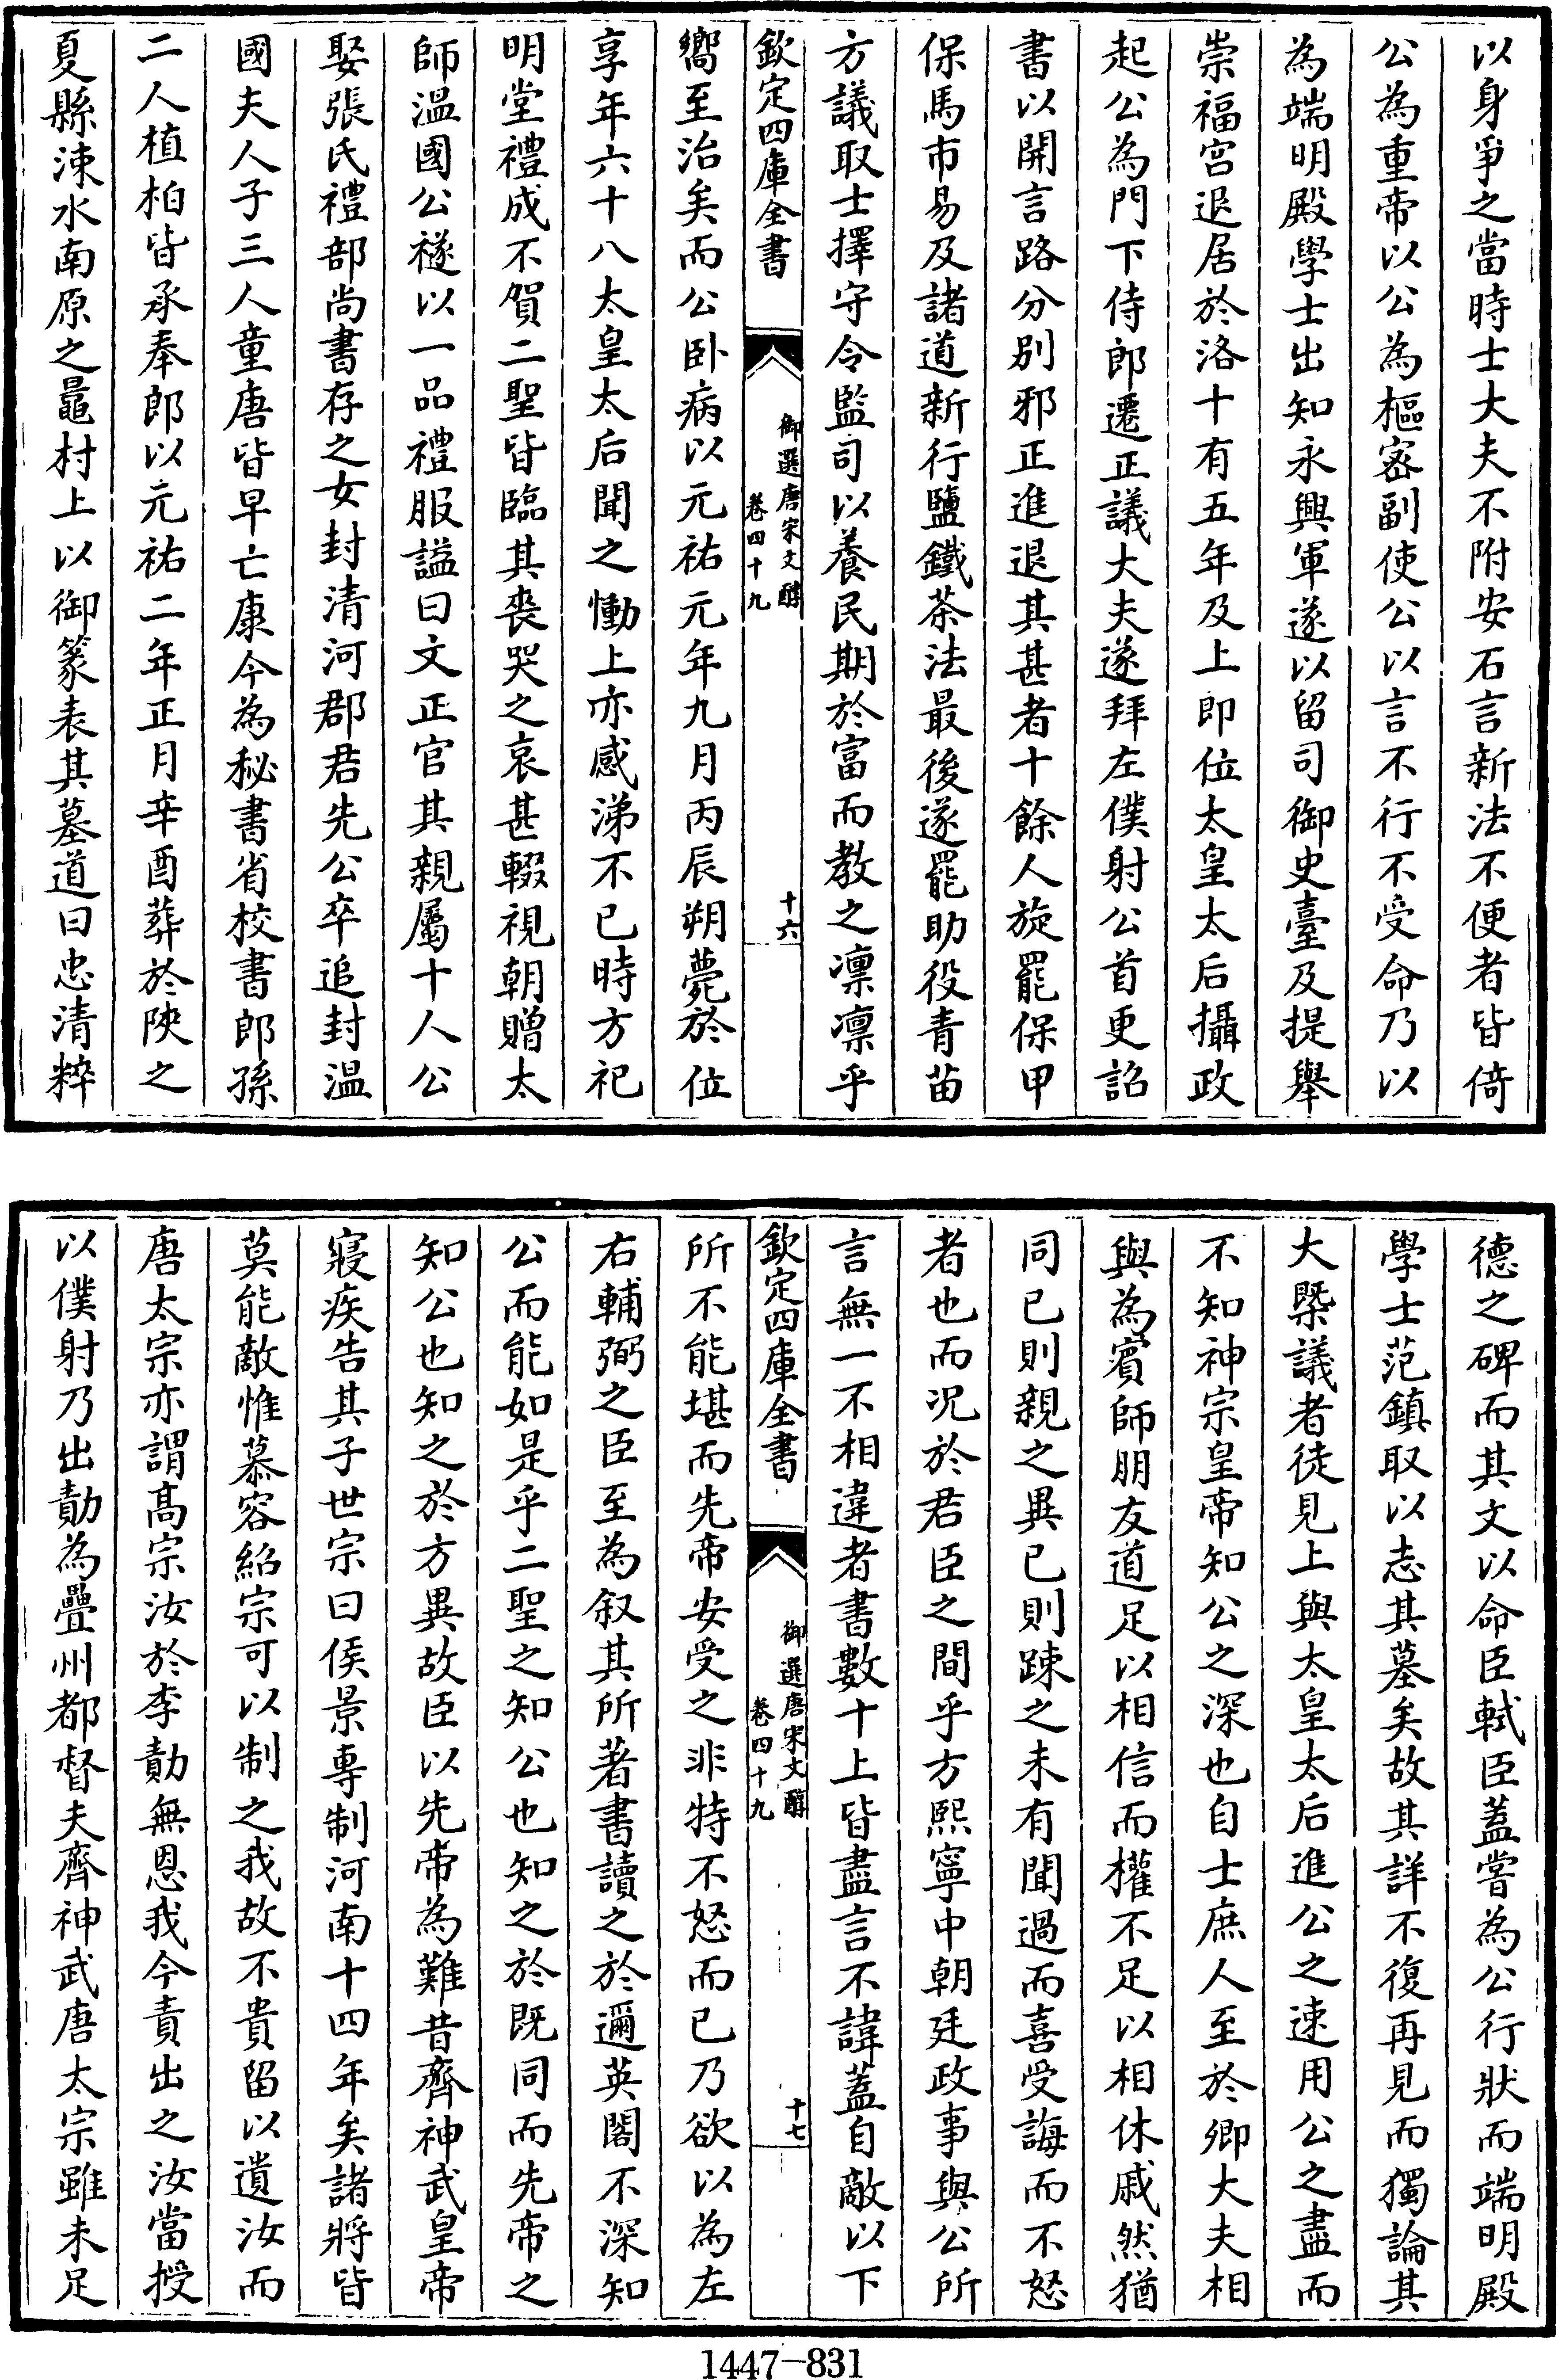 以身爭之當時士大夫不附安石言新法不便者皆倚
公為重帝以公為樞密副使公以言不行不受命乃以
為端明殿學士出知永興軍遂以留司御史臺及提舉
崇福宮退居於洛十有五年及上即位太皇太后攝政
起公為門下侍郎遷正議大夫遂拜左僕射公首更詔
書以開言路分別邪正進退其甚者十餘人旋罷保甲
保馬市易及諸道新行鹽鐵茶法最後遂罷助役青苗
方議取士擇守令監司以養民期於富而教之凜凜乎
欽定四庫全書
御選唐宋文醇
卷四十九
十六
嚮至治矣而公卧病以元祐元年九月丙辰朔薨於位
享年六十八太皇太后聞之慟上亦感涕不已時方祀
明堂禮成不賀二聖皆臨其喪哭之哀甚輟視朝贈太
師溫國公襚以一品禮服謚曰文正官其親屬十人公
娶張氏禮部尚書存之女封清河郡君先公卒追封溫
國夫人子三人童唐皆早亡康今為秘書省校書郎孫
二人植柏皆承奉郎以元祐二年正月辛酉葬於陝之
夏縣涑水南原之鼂村上以御篆表其墓道曰忠清粹
德之碑而其文以命臣軾臣蓋嘗為公行狀而端明殿
學士范鎮取以志其墓矣故其詳不復再見而獨論其
大槩議者徒見上與太皇太后進公之速用公之盡而
不知神宗皇帝知公之深也自士庶人至於卿大夫相
與為賓師朋友道足以相信而權不足以相休戚然猶
同己則親之異己則踈之未有聞過而喜受誨而不怒
者也而况於君臣之間乎方熙寧中朝廷政事與公所
言無一不相違者書數十上皆盡言不諱蓋自敵以下
欽定四庫全書
御選唐宋文醇
卷四十九
十七
所不能堪而先帝安受之非特不怒而已乃欲以為左
右輔弼之臣至為叙其所著書讀之於邇英閣不深知
公而能如是乎二聖之知公也知之於既同而先帝之
知公也知之於方異故臣以先帝為難昔齊神武皇帝
寢疾告其子世宗曰侯景專制河南十四年矣諸將皆
莫能敵惟慕容紹宗可以制之我故不貴留以遺汝而
唐太宗亦謂高宗汝於李勣無恩我今責出之汝當授
以僕射乃出勣為疊州都督夫齊神武唐太宗雖未足
1447-831